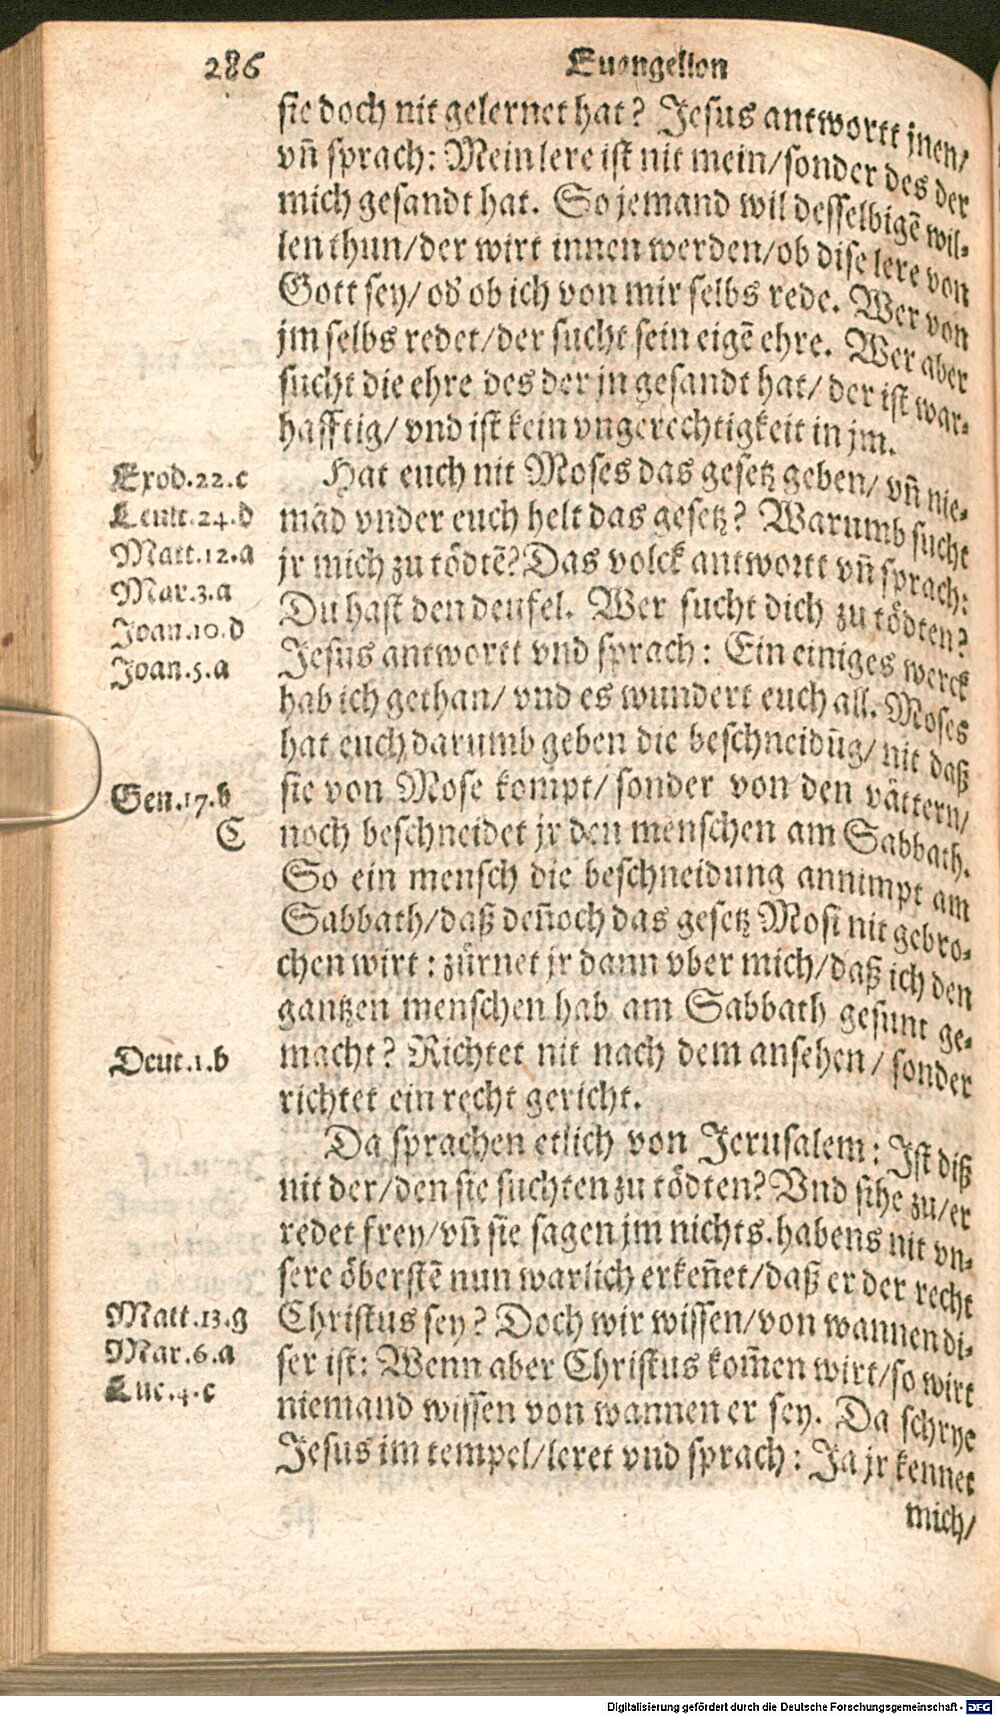 286 Euangelion
sie doch nit gelernet hat? Jesus antwortt jnen/
vñ sprach: Mein lere ist nit mein/sonder des der
mich gesandt hat. So jemand wil desselbigẽ wil-
len thun/der wirt innen werden/ob dise lere von
Gott sey/ od̕ ob ich von mir selbs rede. Wer von
jm selbs redet/der sucht sein eigẽ ehre. Wer aber
sucht die ehre des der jn gesandt hat/ der ist war-
hafftig/ vnd ist kein vngerechtigkeit in jm.
Exod.22.c Hat euch nit Moses das gesetz geben/ vñ nie-
Leuit.24.d mãd vnder euch helt das gesetz? Warumb sucht
Matt.12.a jr mich zu tödtẽ? Das volck antwortt vñ sprach:
Mar.3.a Du hast den deufel. Wer sucht dich zu tödten?
Joan.10.d
Joan.5.a Jesus antwortt vnd sprach: Ein einiges werck
hab ich gethan/ vnd es wundert euch all. Moses
hat euch darumb geben die beschneidũg/ nit daß
Gen.17.b sie von Mose kompt/ sonder von den vättern/
C noch beschneidet jr den menschen am Sabbath.
So ein mensch die beschneidung annimpt am
Sabbath/daß deñoch das gesetz Mosi nit gebro-
chen wirt: zürnet jr dann vber mich/daß ich den
gantzen menschen hab am Sabbath gesunt ge-
Deut.1.b macht? Richtet nit nach dem ansehen/ sonder
richtet ein recht gericht.
Da sprachen etlich von Jerusalem: Ist diß
nit der/den sie suchten zu tödten? Vnd sihe zu/er
redet frey/vñ sie sagen jm nichts. habens nit vn-
sere öberstẽ nun warlich erkeñet/daß er der recht
Matt.13.g Christus sey? Doch wir wissen/von wannen di-
Mar.6.a ser ist: Wenn aber Christus kom̃en wirt/so wirt
Luc.4.c niemand wissen von wannen er sey. Da schrye
Jesus im tempel/leret vnd sprach: Ja jr kennet
mich/
Digitalisierung gefördert durch die Deutsche Forschungsgemeinschaft - DFG